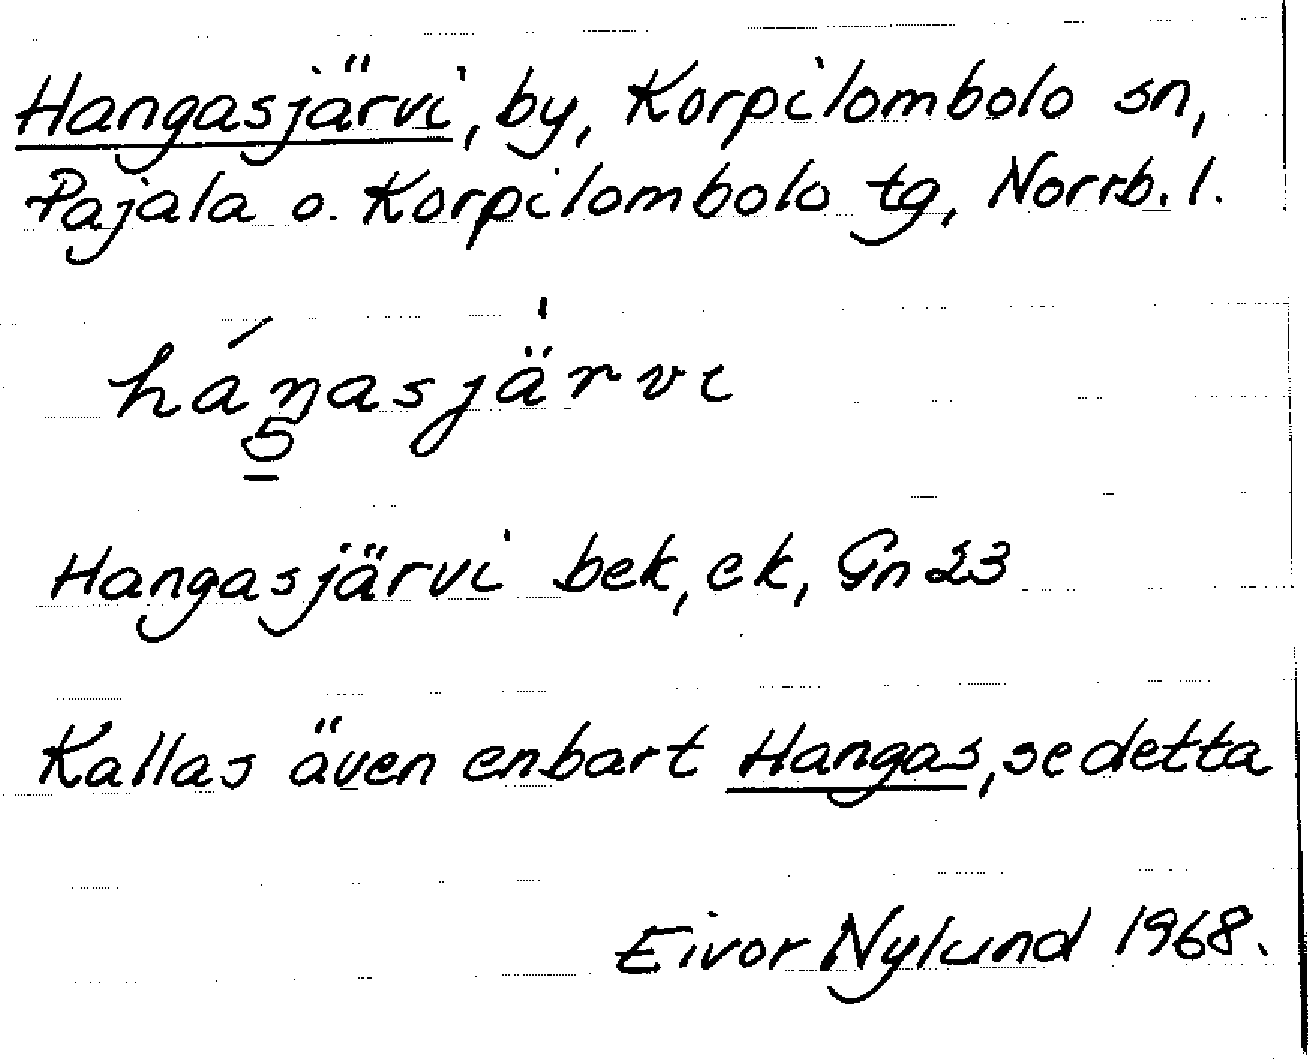 Hangasjärvi, by, Korpilombolo sn,
Pajala o. Korpilombolo tg, Norrb. l.
háŋasjä'rvi
5
Hangasjärvi bek, ek, Gn 23
Kallas även enbart Hangas, se detta
Eivor Nylund 1968.